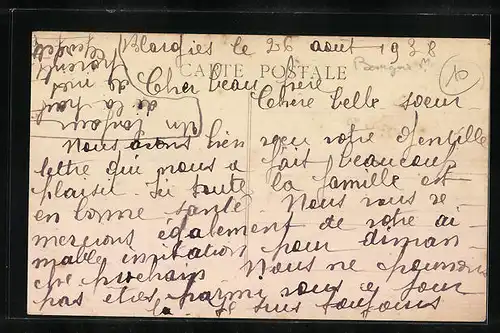 Blargies le 26 aout 1938
CARTE POSTALE
Cher beau frère
Chère belle soeur
Nous avons bien reçu votre gentille
lettre qui nous a fait beaucoup
plaisir. Si toute la famille est
en bonne santé. Nous vous re-
mercions également de votre ai-
mable invitation pour diman-
che prochain. Nous ne pouvons
pas etre parmi vous ce jour
la. Je suis toujours
Un bonjour
de la part
de mes
10